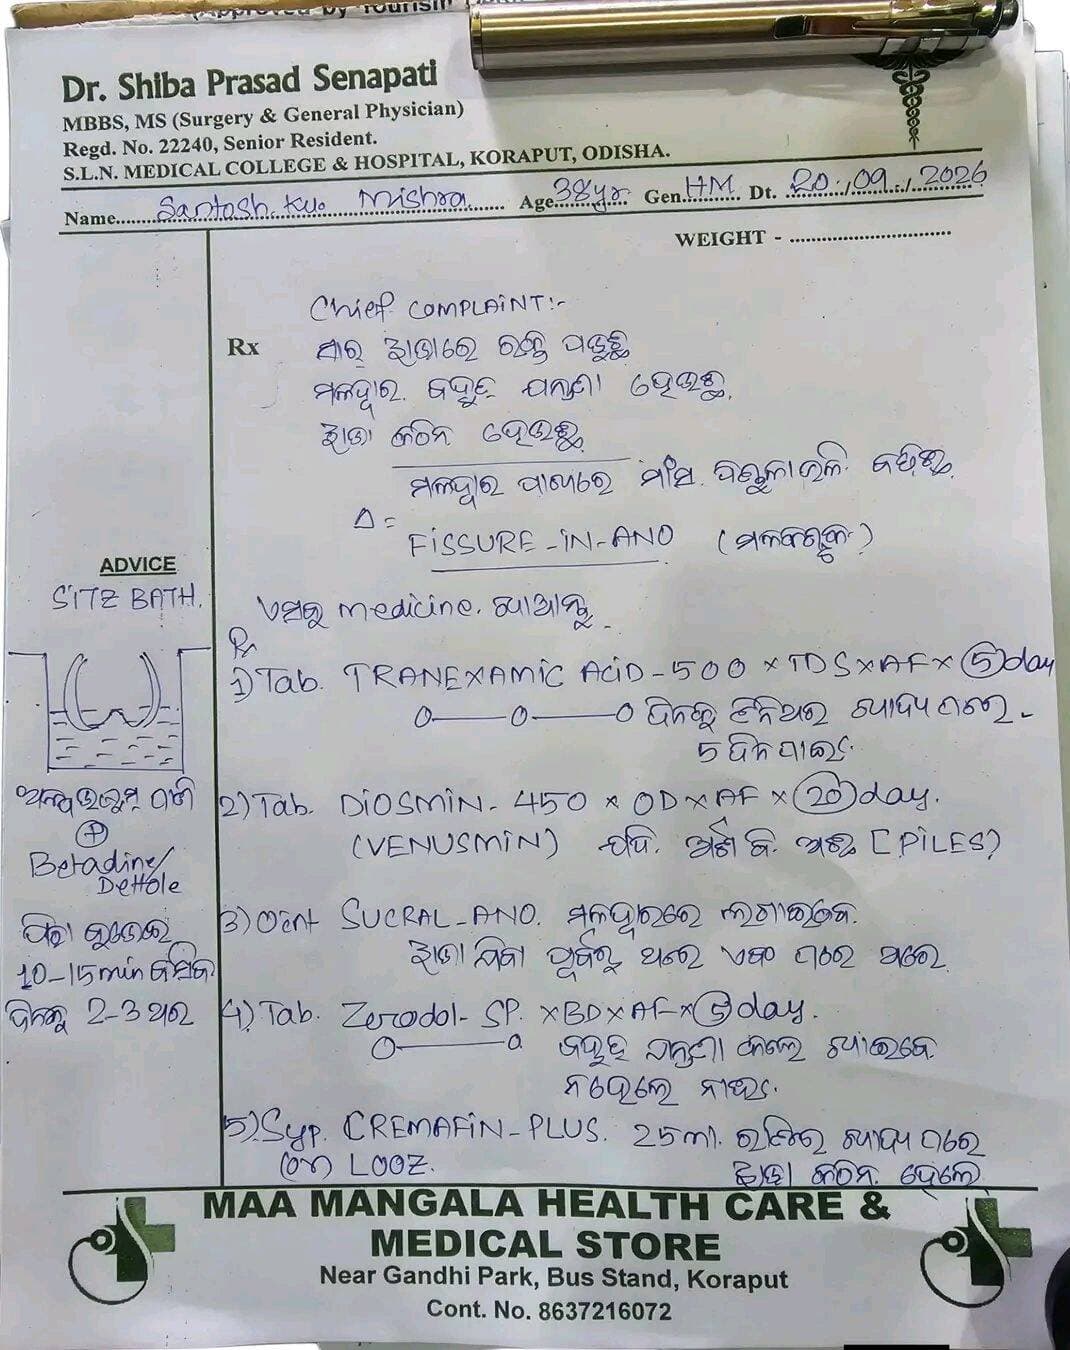 (Approved by Tourism
Dr. Shiba Prasad Senapati
MBBS, MS (Surgery & General Physician)
Regd. No. 22240, Senior Resident.
S.L.N. MEDICAL COLLEGE & HOSPITAL, KORAPUT, ODISHA.
Name Santosh Ku. Mishra Age 38yr Gen HM Dt. 20/09/2026
WEIGHT -
Chief COMPLAINT:-
Rx ସାର୍ ଝାଡାରେ ରକ୍ତ ପଡୁଛି
ମଳଦ୍ୱାର ବହୁତ ଯନ୍ତ୍ରଣା ହେଉଛି
ଝାଡା କଠିନ ହେଉଛି
ମଳଦ୍ୱାର ପାଖରେ ମାଂସ ଭଳି
Δ =
FISSURE-IN-ANO
medicine ଖାଆନ୍ତୁ
Rx
1) Tab. TRANEXAMIC ACID-500 x TDS x AF x 5 day
ଦିନକୁ ତିନିଥର ଖାଦ୍ୟ ପରେ
5 ଦିନ ପାଇଁ
2) Tab. DIOSMIN-450 x OD x AF x 20 day.
(VENUSMIN) ଯଦି ଅର୍ଶ ବି ଅଛି [PILES]
3) Oint SUCRAL-ANO. ମଳଦ୍ୱାରରେ ଲଗାଇବେ
ଝାଡା ଯିବା ପୂର୍ବରୁ ଥରେ ଏବଂ ପରେ ଥରେ
4) Tab. Zerodol-SP. x BD x AF x 5 day.
ବହୁତ ଯନ୍ତ୍ରଣା ହେଲେ ଖାଇବେ
ନହେଲେ ନାହିଁ
5) Syp. CREMAFIN-PLUS. 25ml. ରାତିରେ ଖାଦ୍ୟ ପରେ
(or) LOOZ. ଝାଡା କଠିନ ହେଲେ
ADVICE
SITZ BATH.
ଅଳ୍ପ ଉଷୁମ୍ ପାଣି
+
Betadine/
Dettole
10-15min ବସିବେ
ଦିନକୁ 2-3 ଥର
MAA MANGALA HEALTH CARE &
MEDICAL STORE
Near Gandhi Park, Bus Stand, Koraput
Cont. No. 8637216072